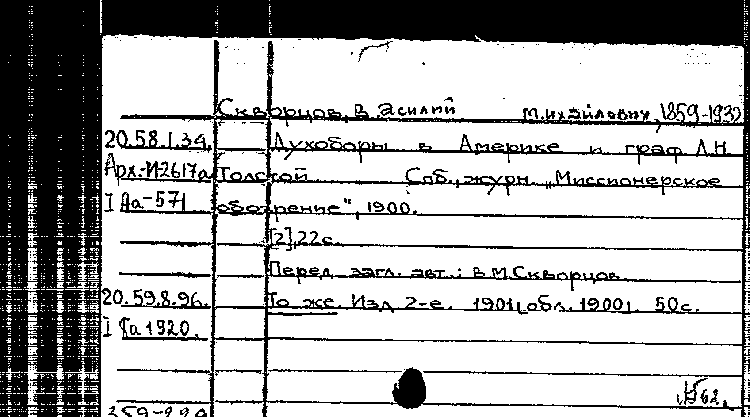 Скворцов, Василий Михайлович, 1859-1932
20.58.1.34. Духоборы в Америке и граф Л.Н.
Арх.-И2617а Толстой Спб., журн. „Миссионерское
I Яа-571 обозрение", 1900.
[2],22с.
Перед загл. авт.: В.М.Скворцов.
20.59.8.96. То же. Изд. 2-е. 1901[обл. 1900]. 50с.
I 1920.
62